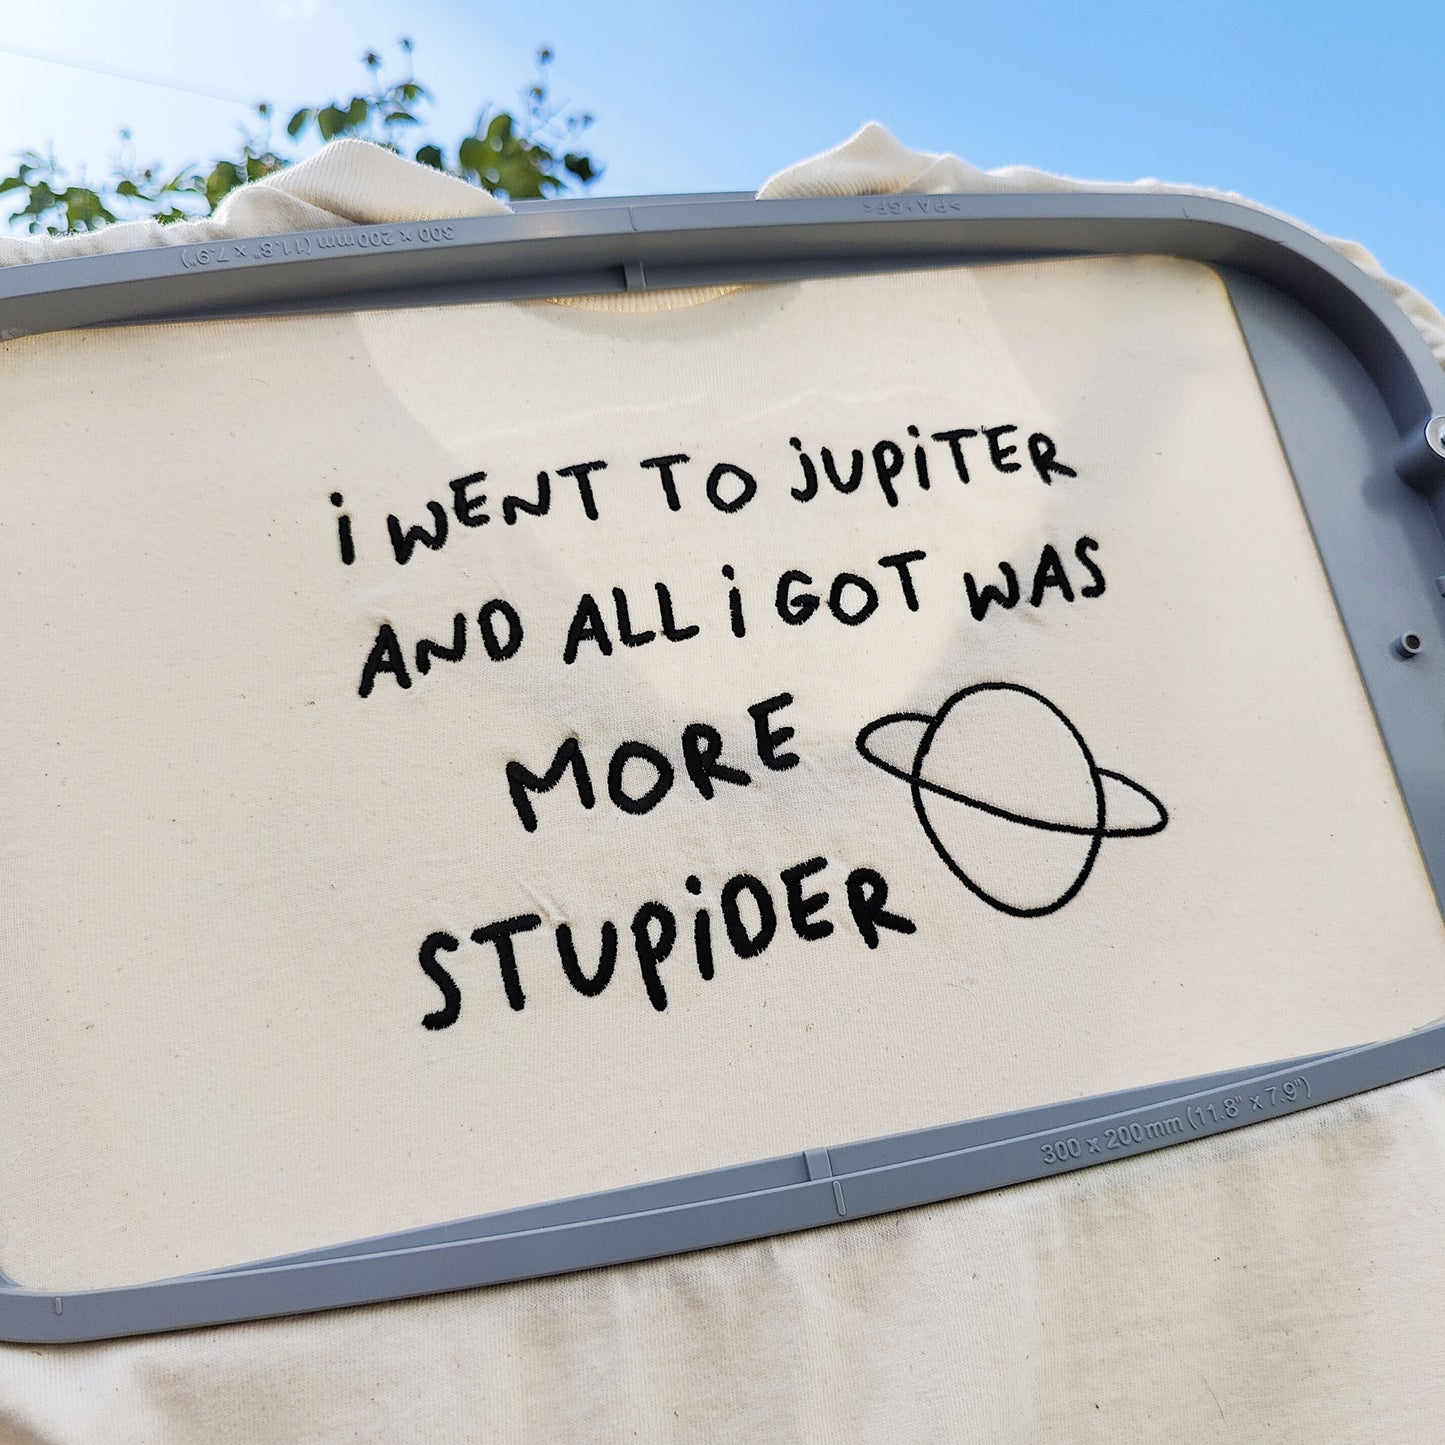 300 x 200mm (11.8" x 7.9")
>PA+GF<
i WENT TO jUPiTER
AND ALL i GOT WAS
MORE
STUPiDER
300 x 200mm (11.8" x 7.9")